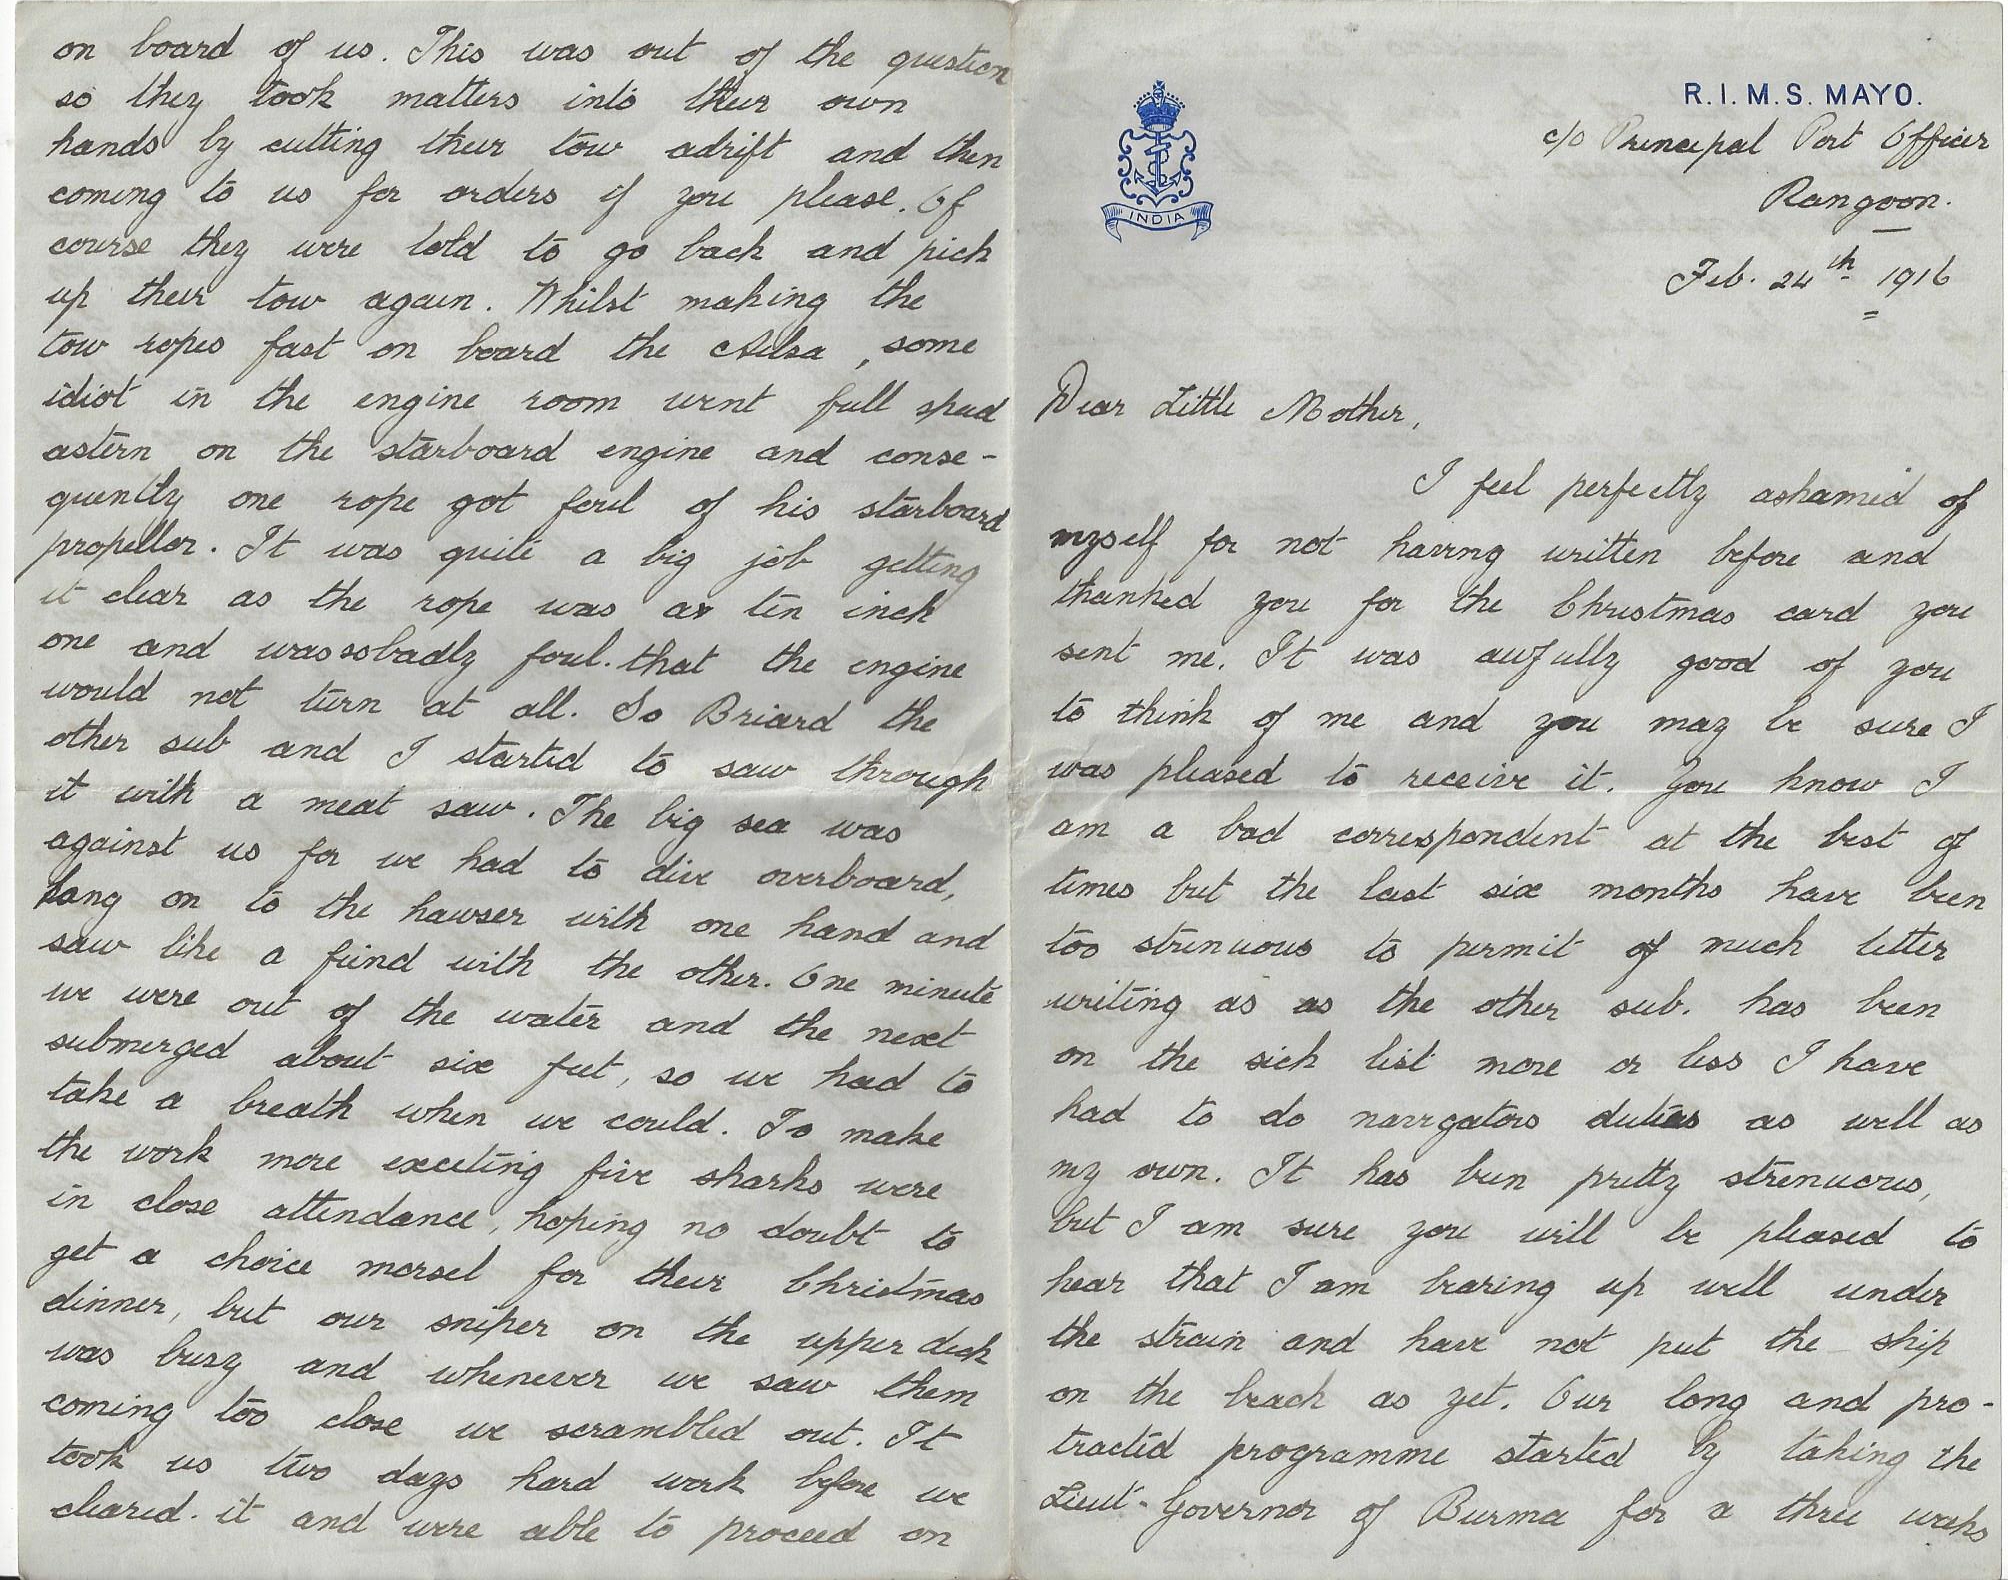 R.I.M.S. MAYO.
INDIA
c/o Principal Port Officer
Rangoon.
Feb. 24th 1916
Dear Little Mother,
I feel perfectly ashamed of
myself for not having written before and
thanked you for the Christmas card you
sent me. It was awfully good of you
to think of me and you may be sure I
was pleased to receive it. You know I
am a bad correspondent at the best of
times but the last six months have been
too strenuous to permit of much letter
writing as as the other sub. has been
on the sick list more or less I have
had to do navigators duties as well as
my own. It has been pretty strenuous,
but I am sure you will be pleased to
hear that I am bearing up well under
the strain and have not put the ship
on the beach as yet. Our long and pro-
tracted programme started by taking the
Lieut-Governor of Burma for a three weeks
on board of us. This was out of the question
so they took matters into their own
hands by cutting their tow adrift and then
coming to us for orders if you please. Of
course they were told to go back and pick
up their tow again. Whilst making the
tow ropes fast on board the Ailsa, some
idiot in the engine room went full speed
astern on the starboard engine and conse-
quently one rope got foul of his starboard
propellor. It was quite a big job getting
it clear as the rope was a ten inch
one and was so badly foul. that the engine
would not turn at all. So Briard the
other sub and I started to saw through
it with a meat saw. The big sea was
against us for we had to dive overboard,
hang on to the hawser with one hand and
saw like a fiend with the other. One minute
we were out of the water and the next
submerged about six feet, so we had to
take a breath when we could. To make
the work more exceting five sharks were
in close attendance, hoping no doubt to
get a choice morsel for their Christmas
dinner, but our sniper on the upper deck
was busy and whenever we saw them
coming too close we scrambled out. It
took us two days hard work before we
cleared. it and were able to proceed on